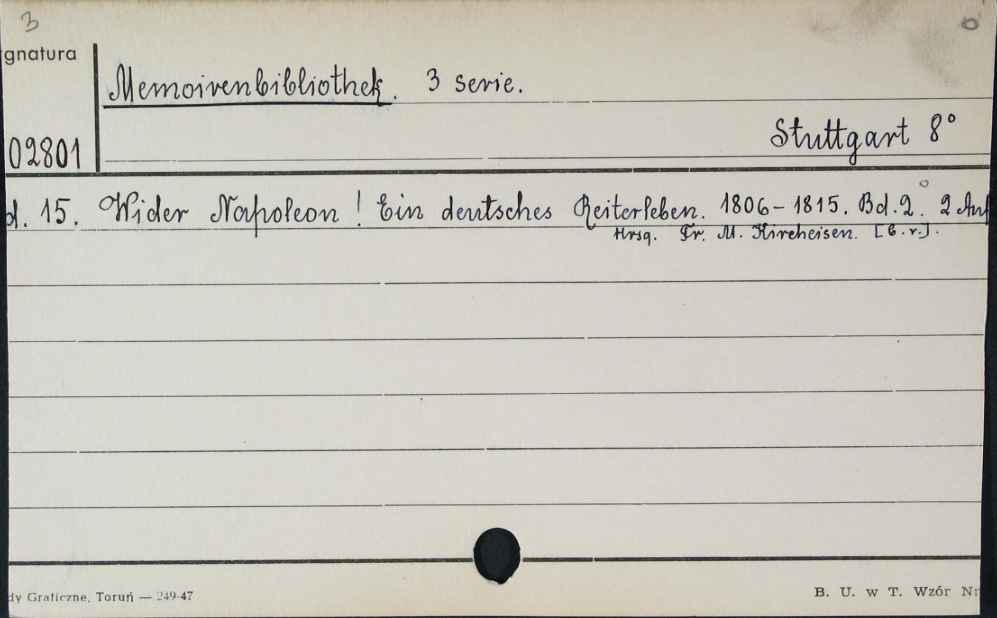 3
gnatura
Memoirenbibliothek. 3 serie.
02801
Stuttgart 8°
d. 15. Wider Napoleon! Ein deutsches Reiterleben. 1806-1815. Bd. 2. 2 Auf
Hrsg. Fr. M. Kircheisen. [b.r.].
dy Graficzne, Toruń — 249-47
B. U. w T. Wzór Nr